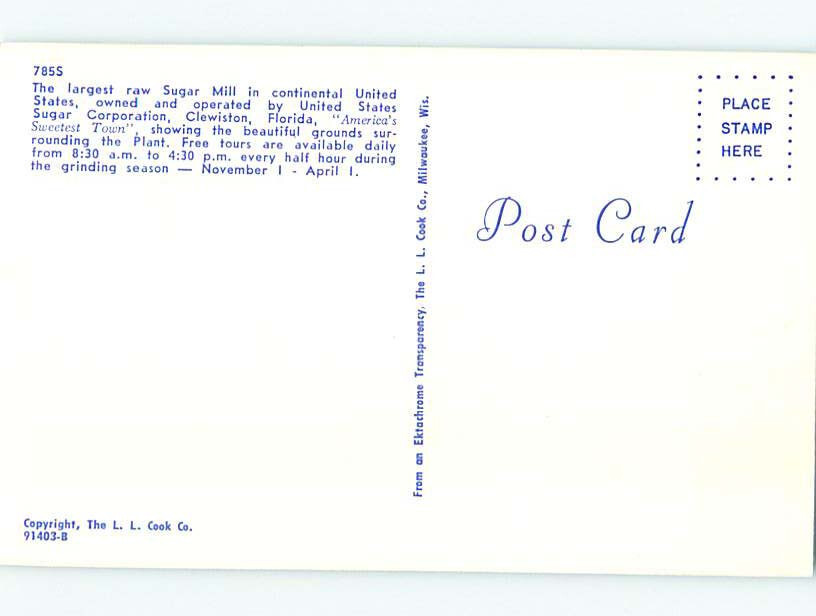 785S
The largest raw Sugar Mill in continental United
States, owned and operated by United States
Sugar Corporation, Clewiston, Florida, "America's
Sweetest Town", showing the beautiful grounds sur-
rounding the Plant. Free tours are available daily
from 8:30 a.m. to 4:30 p.m. every half hour during
the grinding season — November 1 - April 1.
Copyright, The L. L. Cook Co.
91403-B
From an Ektachrome Transparency, The L. L. Cook Co., Milwaukee, Wis.
PLACE
STAMP
HERE
Post Card